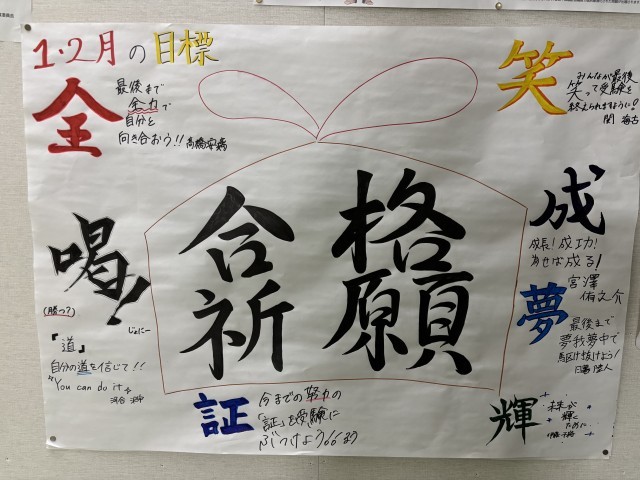 1・2月の目標
全
最後まで
全力で
自分と
向き合おう!!
笑
みんなが最後
笑って受験を
終えられますように!
関
成
成長!成功!
為せば成る!
宮澤
佑之介
合格
祈願
喝!
(勝つ?)
じょにー
『道』
自分の道を信じて!!
"You can do it"
夢
最後まで
夢我夢中で
駆け抜けよう!
証
今までの努力の
「証」を受験に
ぶつけよう
輝
輝く
ために